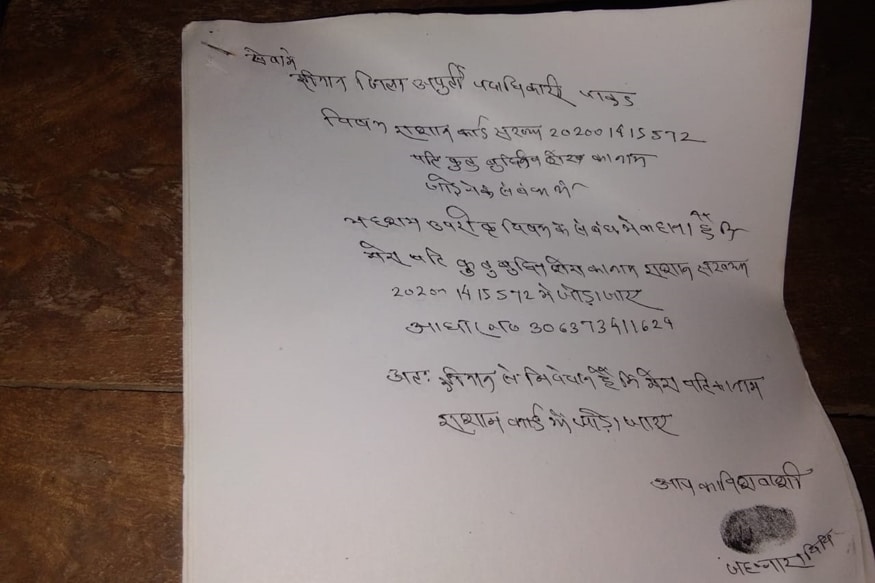 सेवामे
श्रीमान जिला अपुर्ती पदाधिकारी पाकुड
विषय राशान कार्ड संख्या 202001415572
पति कुतुबुद्दिन शेख का नाम
जोड़ने के संबंध में
महाशय उपरीक्त विषय के संबंध मे कहना है कि
मेरा पति कुतुबुद्दिन शेख का नाम राशान संख्या
202001415572 मे जोड़ा जाए
आधार न० 306373411629
अतः श्रीमान से निवेदन है कि मेरा पति का नाम
राशान कार्ड में जोड़ा जाए
आप का विश्वासी